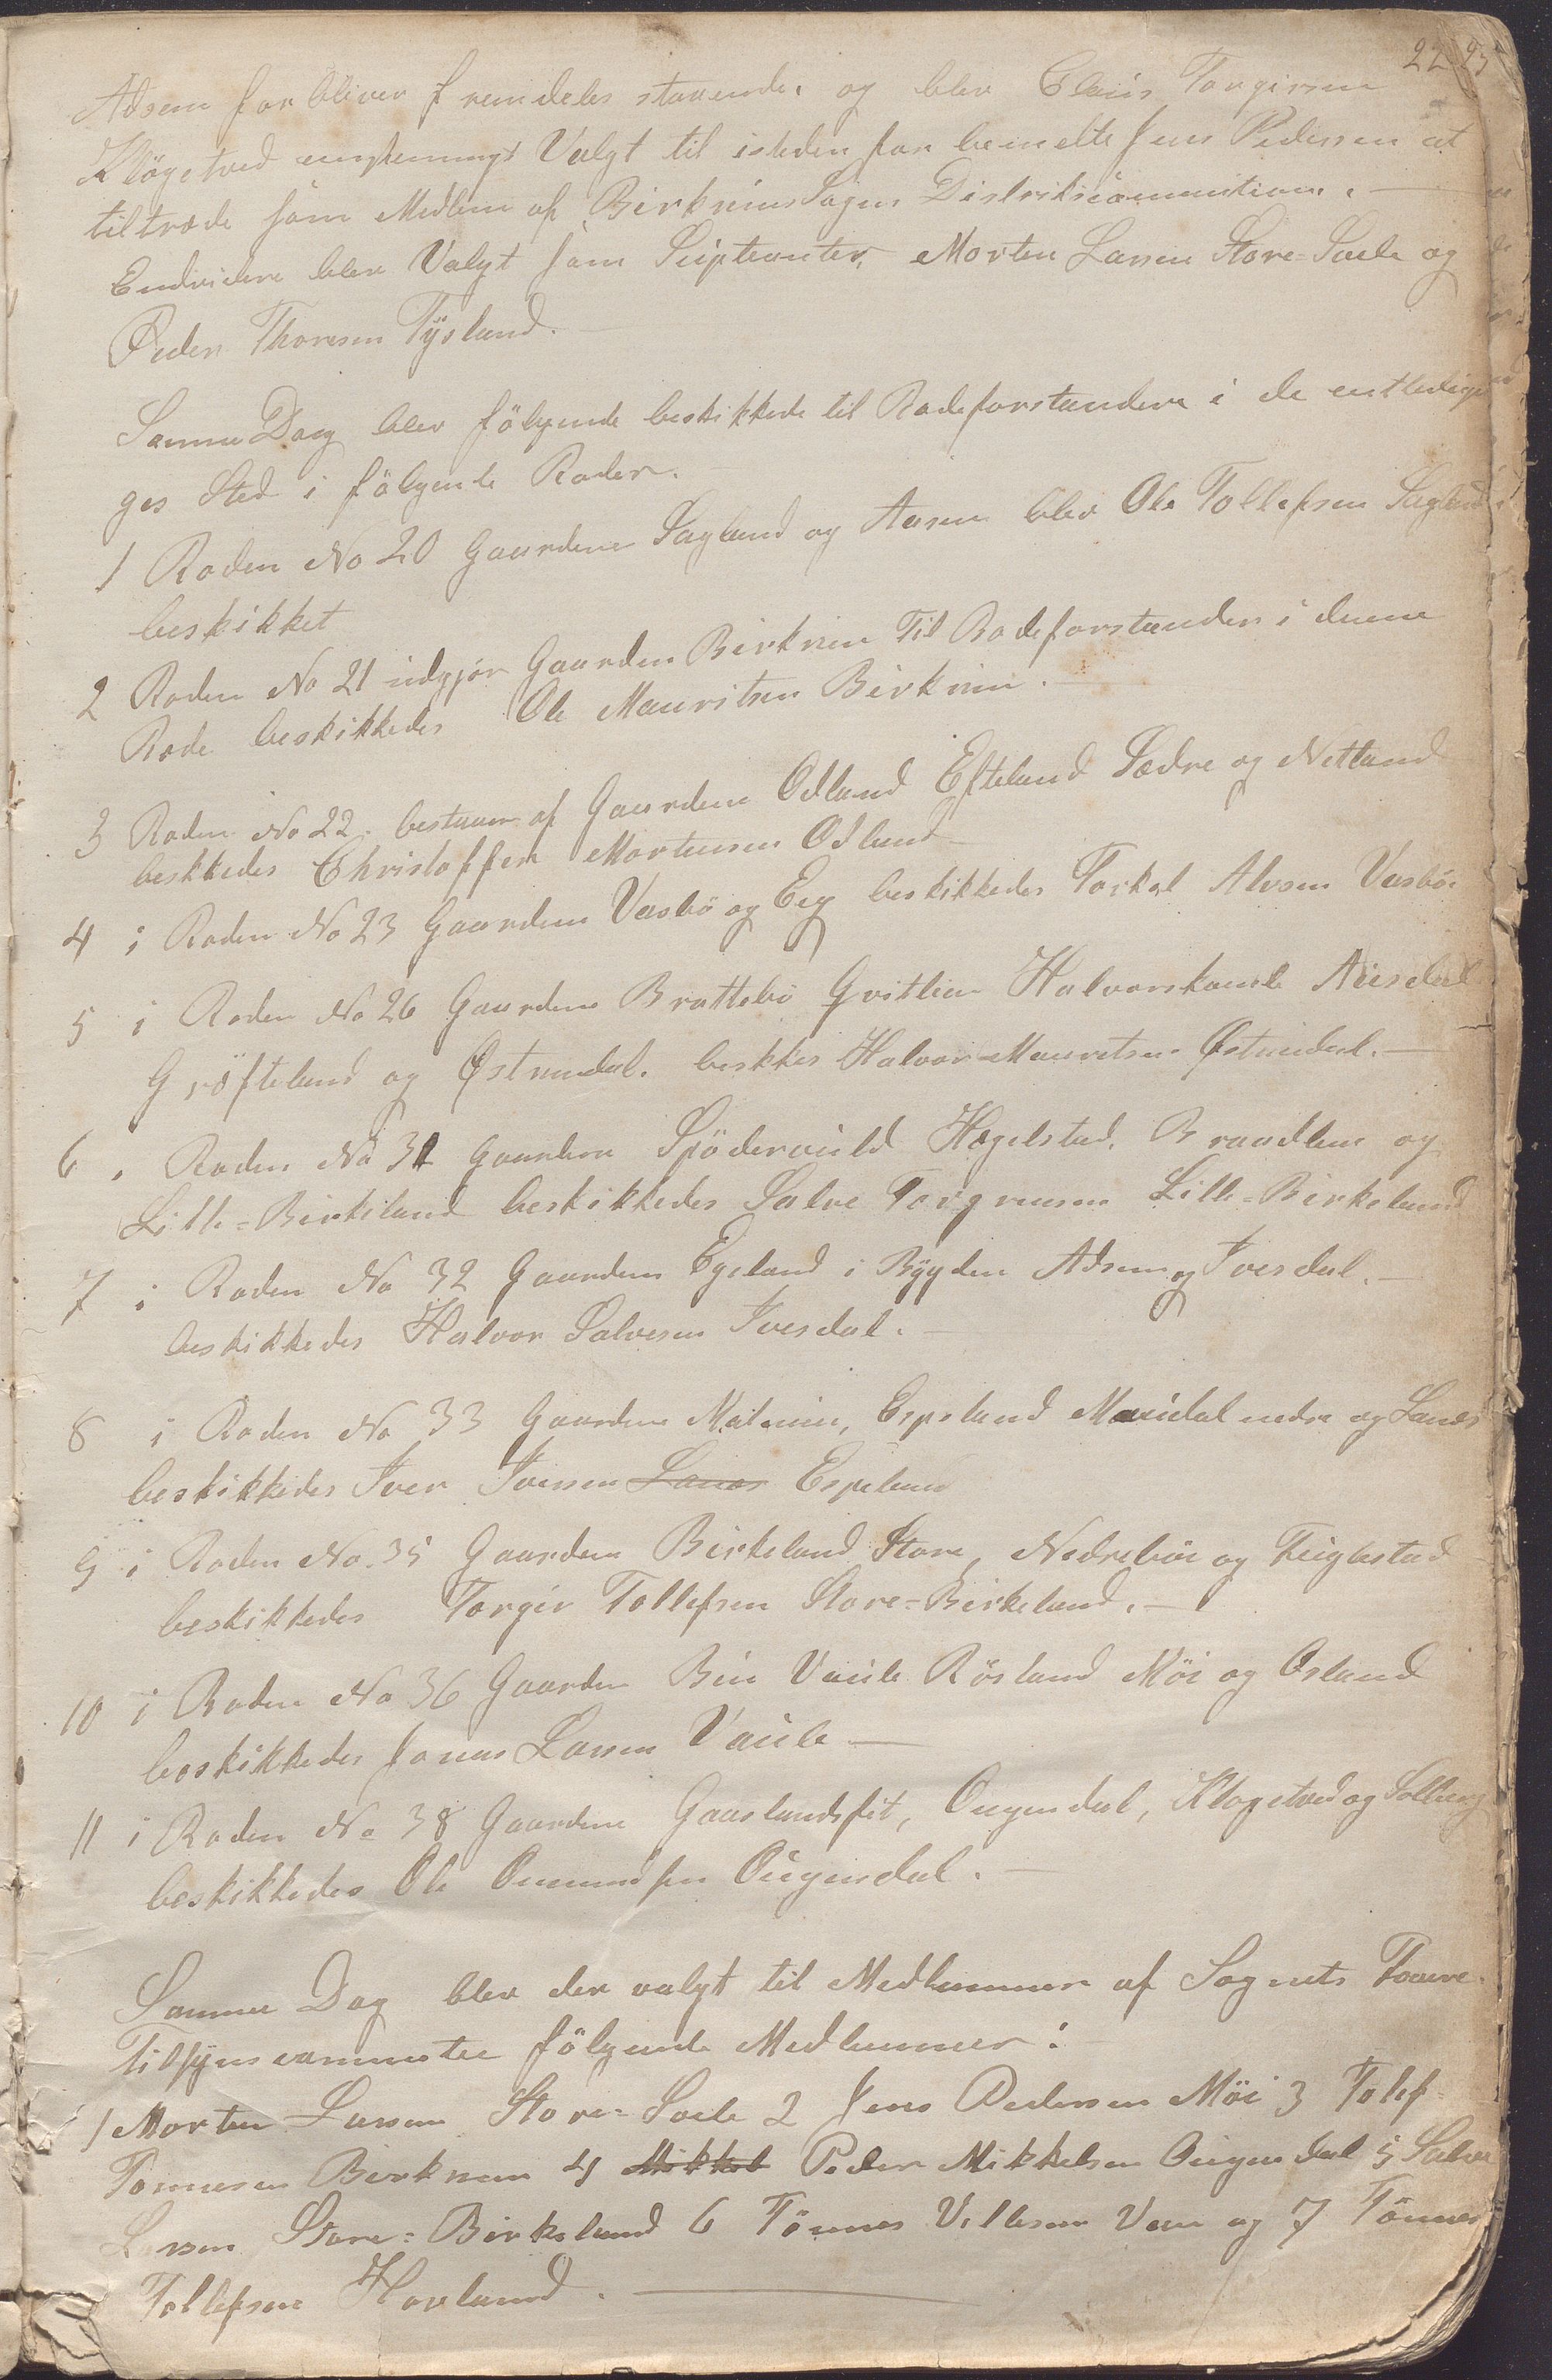 22 23
Adsem forbliver fremdeles staaende. og blev Claus Torgirsen
Kløgetved eenstemmigt Valgt til isteden for bemeldte Jens Pedersen at
tiltræde som Medlem af Birkrims Sogns Distrikscommition. —
Endvidere blev Valgt som Supteanter, Morten Larsen Store-Svele og
Peder Thoresen Tÿsland. —
Samme Dag blev følgende beskikkede til Rodeforstandere i de entledige
ges Sted i følgende Roder. —
1 Roden No 20 Gaardene Sagland og Aasen blev Ole Tollefsen Sagland
beskikket
2 Roden No 21 udgjør Gaarden Birkrim Til Rodeforstander i denne
Rode beskikkedes Ole Mauritsen Birkrim. —
3 Roden No 22. bestaar af Gaardene Odland Efteland Sædre og Netland
beskkedes Christoffer Mortensen Odland —
4 i Roden No 23 Gaardene Vasbø og Eeg beskikkedes Torkel Alvsen Vasbø.
5 i Roden No 26 Gaardene Brattebø Gvitlien Halvorskaasle Ausdal
Grøfteland og Østrumdal. beskkes Halvor Mauritsen Østrumdal. —
6 . Roden No 31 Gaardene Spøderveild Hægelstad. Brandlen og
Lille-Birkeland beskikkedes Salve Torgrimsen Lille-Birkeland
7 i Roden No 32 Gaardene Egeland i Bÿgden Adsem og Ivesdal. —
beskikkedes Halvor Salvesen Ivesdal. —
8 i Roden No 33 Gaardene Malmin, Espeland Maudal nedre og Lanes
beskikkedes Iver Iversen Lanes Espeland
9 i Roden No. 35 Gaardene Birkeland Store, Nedrebøe og Fuglestad
beskikkedes Torgir Tollefsen Store-Birkeland. —
10 i Roden No 36 Gaarden Bue Vaule Røsland Møi og Osland
beskikkedes Jonas Larsen Vaule —
11 i Roden No 38 Gaardene Gaaslandsfit, Ougendal, Kløgetved og Solberg
beskikkedes Ole Omundsen Ougendal. —
Samme Dag blev der valgt til Medlemmer af Sognets Faare-
tilsyns committee følgende Medlemmer:
1 Morten Larsen Store-Svele 2 Jens Pedersen Møi 3 Tolef
Tønnesen Birkrem 4 Mikkel Peder Mikkelsen Ougendal 5 Salve
Larsen Store-Birkeland 6 Tønnes Villesen Veen og 7 Tønnes
Tollefsen Hovland. —